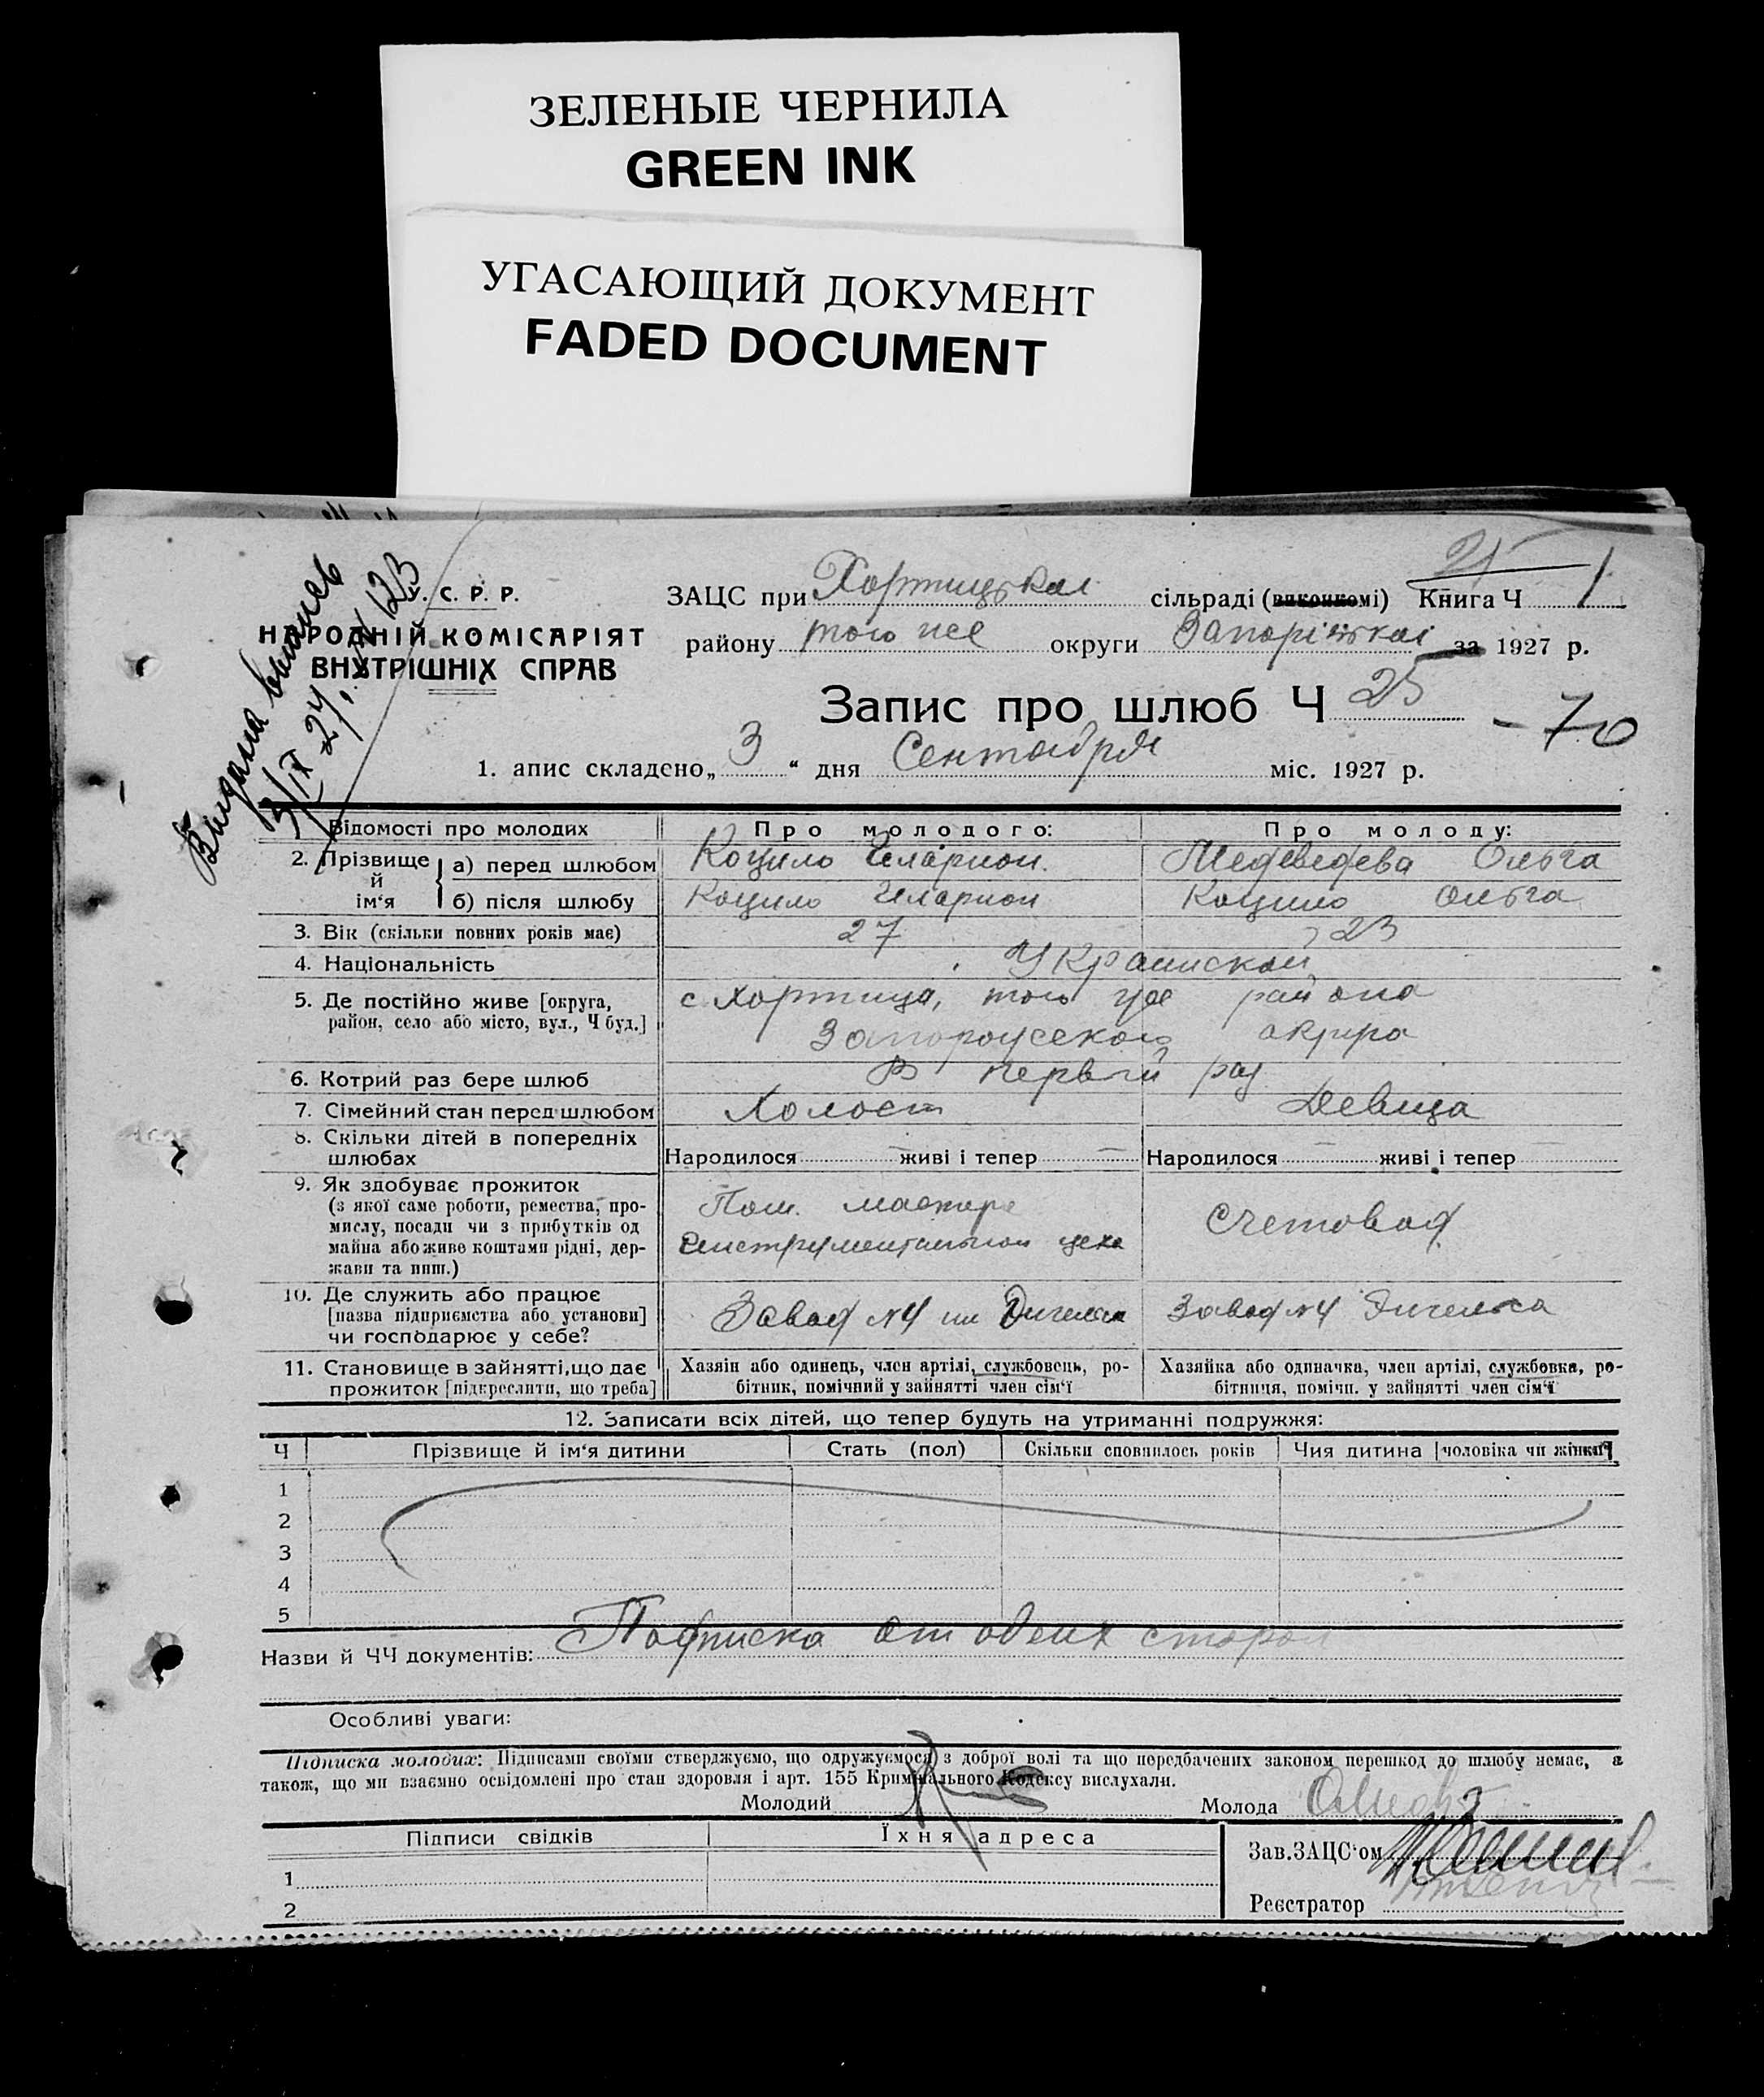 ЗЕЛЕНЫЕ ЧЕРНИЛА
GREEN INK
УГАСАЮЩИЙ ДОКУМЕНТ
FADED DOCUMENT
21
У. С. Р. Р.
НАРОДНІЙ КОМІСАРІЯТ
ВНУТРІШНІХ СПРАВ
Видана випись
3/IX 27 №123
ЗАЦС при Хортицькой сільраді (виконкомі) Книга Ч 1
району того же округи Запоріжскоі за 1927 р.
Запис про шлюб Ч 25 - 70
1. апис складено „3“ дня Сентября міс. 1927 р.
Відомості про молодих Про молодого: Про молоду:
2. Прізвище й ім‘я а) перед шлюбом Коцило Иларион. Медведева Ольга
б) після шлюбу Коцило Иларион Коцило Ольга
3. Вік (скільки повних років має) 27 23
4. Національність Украинской
5. Де постійно живе [округа, с. Хортица, того же района
район, село або місто, вул., Ч буд.] Запорожского округа
6. Котрий раз бере шлюб В первый раз
7. Сімейний стан перед шлюбом Холост Девица
8. Скільки дітей в попередніх
шлюбах Народилося — живі і тепер — Народилося — живі і тепер —
9. Як здобуває прожиток
(з якої саме роботи, ремества, про- Пом. мастера Счетовод
мислу, посади чи з прибутків од
майна або живе коштами рідні, дер- Инструментальном цеха
жави та инш.)
10. Де служить або працює
[назва підприємства або установи] Завод №4 им Энгельса Завод №4 Энгельса
чи господарює у себе?
11. Становище в зайнятті, що дає Хазяін або одинець, член артілі, службовець, ро- Хазяйка або одиначка, член артілі, службовка, ро-
прожиток [підкреслити, що треба] бітник, помічний у зайнятті член сім‘ї бітниця, помічн. у зайнятті член сім‘ї
12. Записати всіх дітей, що тепер будуть на утриманні подружжя:
Ч Прізвище й ім‘я дитини Стать (пол) Скільки сповнилось років Чия дитина [чоловіка чи жінки]
1
2
3
4
5
Назви й ЧЧ документів: Подписка от обеих сторон
Особливі уваги:
Підписка молодих: Підписами своїми стверджуємо, що одружуємося з доброї волі та що передбачених законом перешкод до шлюбу немає, а
також, що ми взаємно освідомлені про стан здоровля і арт. 155 Кримінального Кодексу вислухали.
Молодий Молода
Підписи свідків Їхня адреса
Зав. ЗАЦС‘ом
1
Реєстратор
2